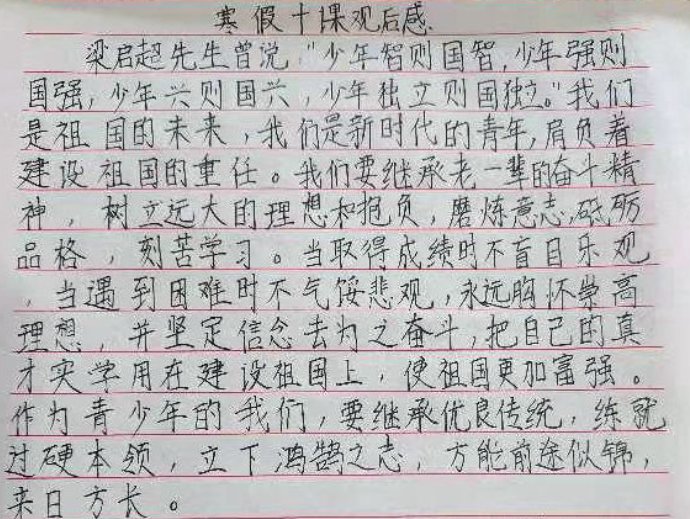 寒假十课观后感
梁启超先生曾说，"少年智则国智，少年强则
国强，少年兴则国兴，少年独立则国独立。"我们
是祖国的未来，我们是新时代的青年，肩负着
建设祖国的重任。我们要继承老一辈的奋斗精
神，树立远大的理想和抱负，磨炼意志，砥砺
品格，刻苦学习。当取得成绩时不盲目乐观
，当遇到困难时不气馁悲观，永远胸怀崇高
理想，并坚定信念去为之奋斗，把自己的真
才实学用在建设祖国上，使祖国更加富强。
作为青少年的我们，要继承优良传统，练就
过硬本领，立下鸿鹄之志，方能前途似锦，
来日方长。